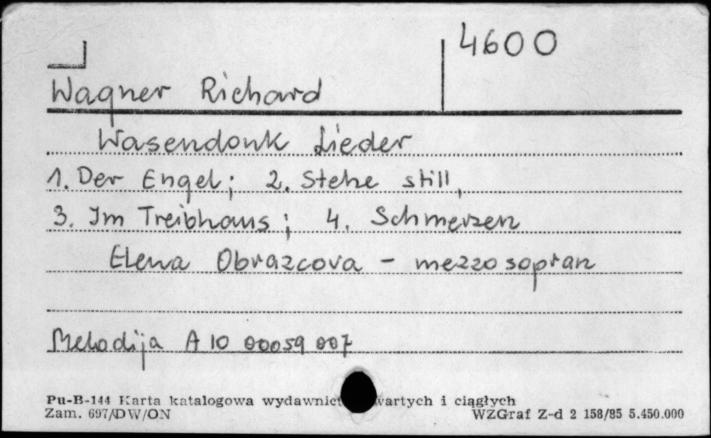 4600
Wagner Richard
Wasendonk Lieder
1. Der Engel; 2. Stehe still,
3. Im Treibhaus; 4. Schmerzen
Elena Obrazcova - mezzosopran
Melodija A 10 00059 007
Pu-B-144 Karta katalogowa wartych i ciągłych
Zam. 697/DW/ON WZGraf Z-d 2 158/85 5.450.000